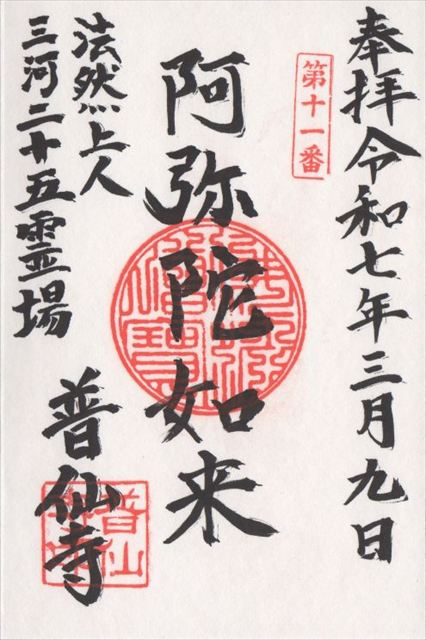 奉拝令和七年三月九日
第十一番
阿弥陀如来
法然上人
三河二十五霊場
普仙寺